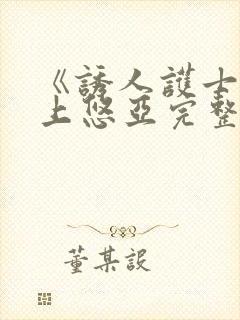 《誘人護士
上悠亞完整
董某設